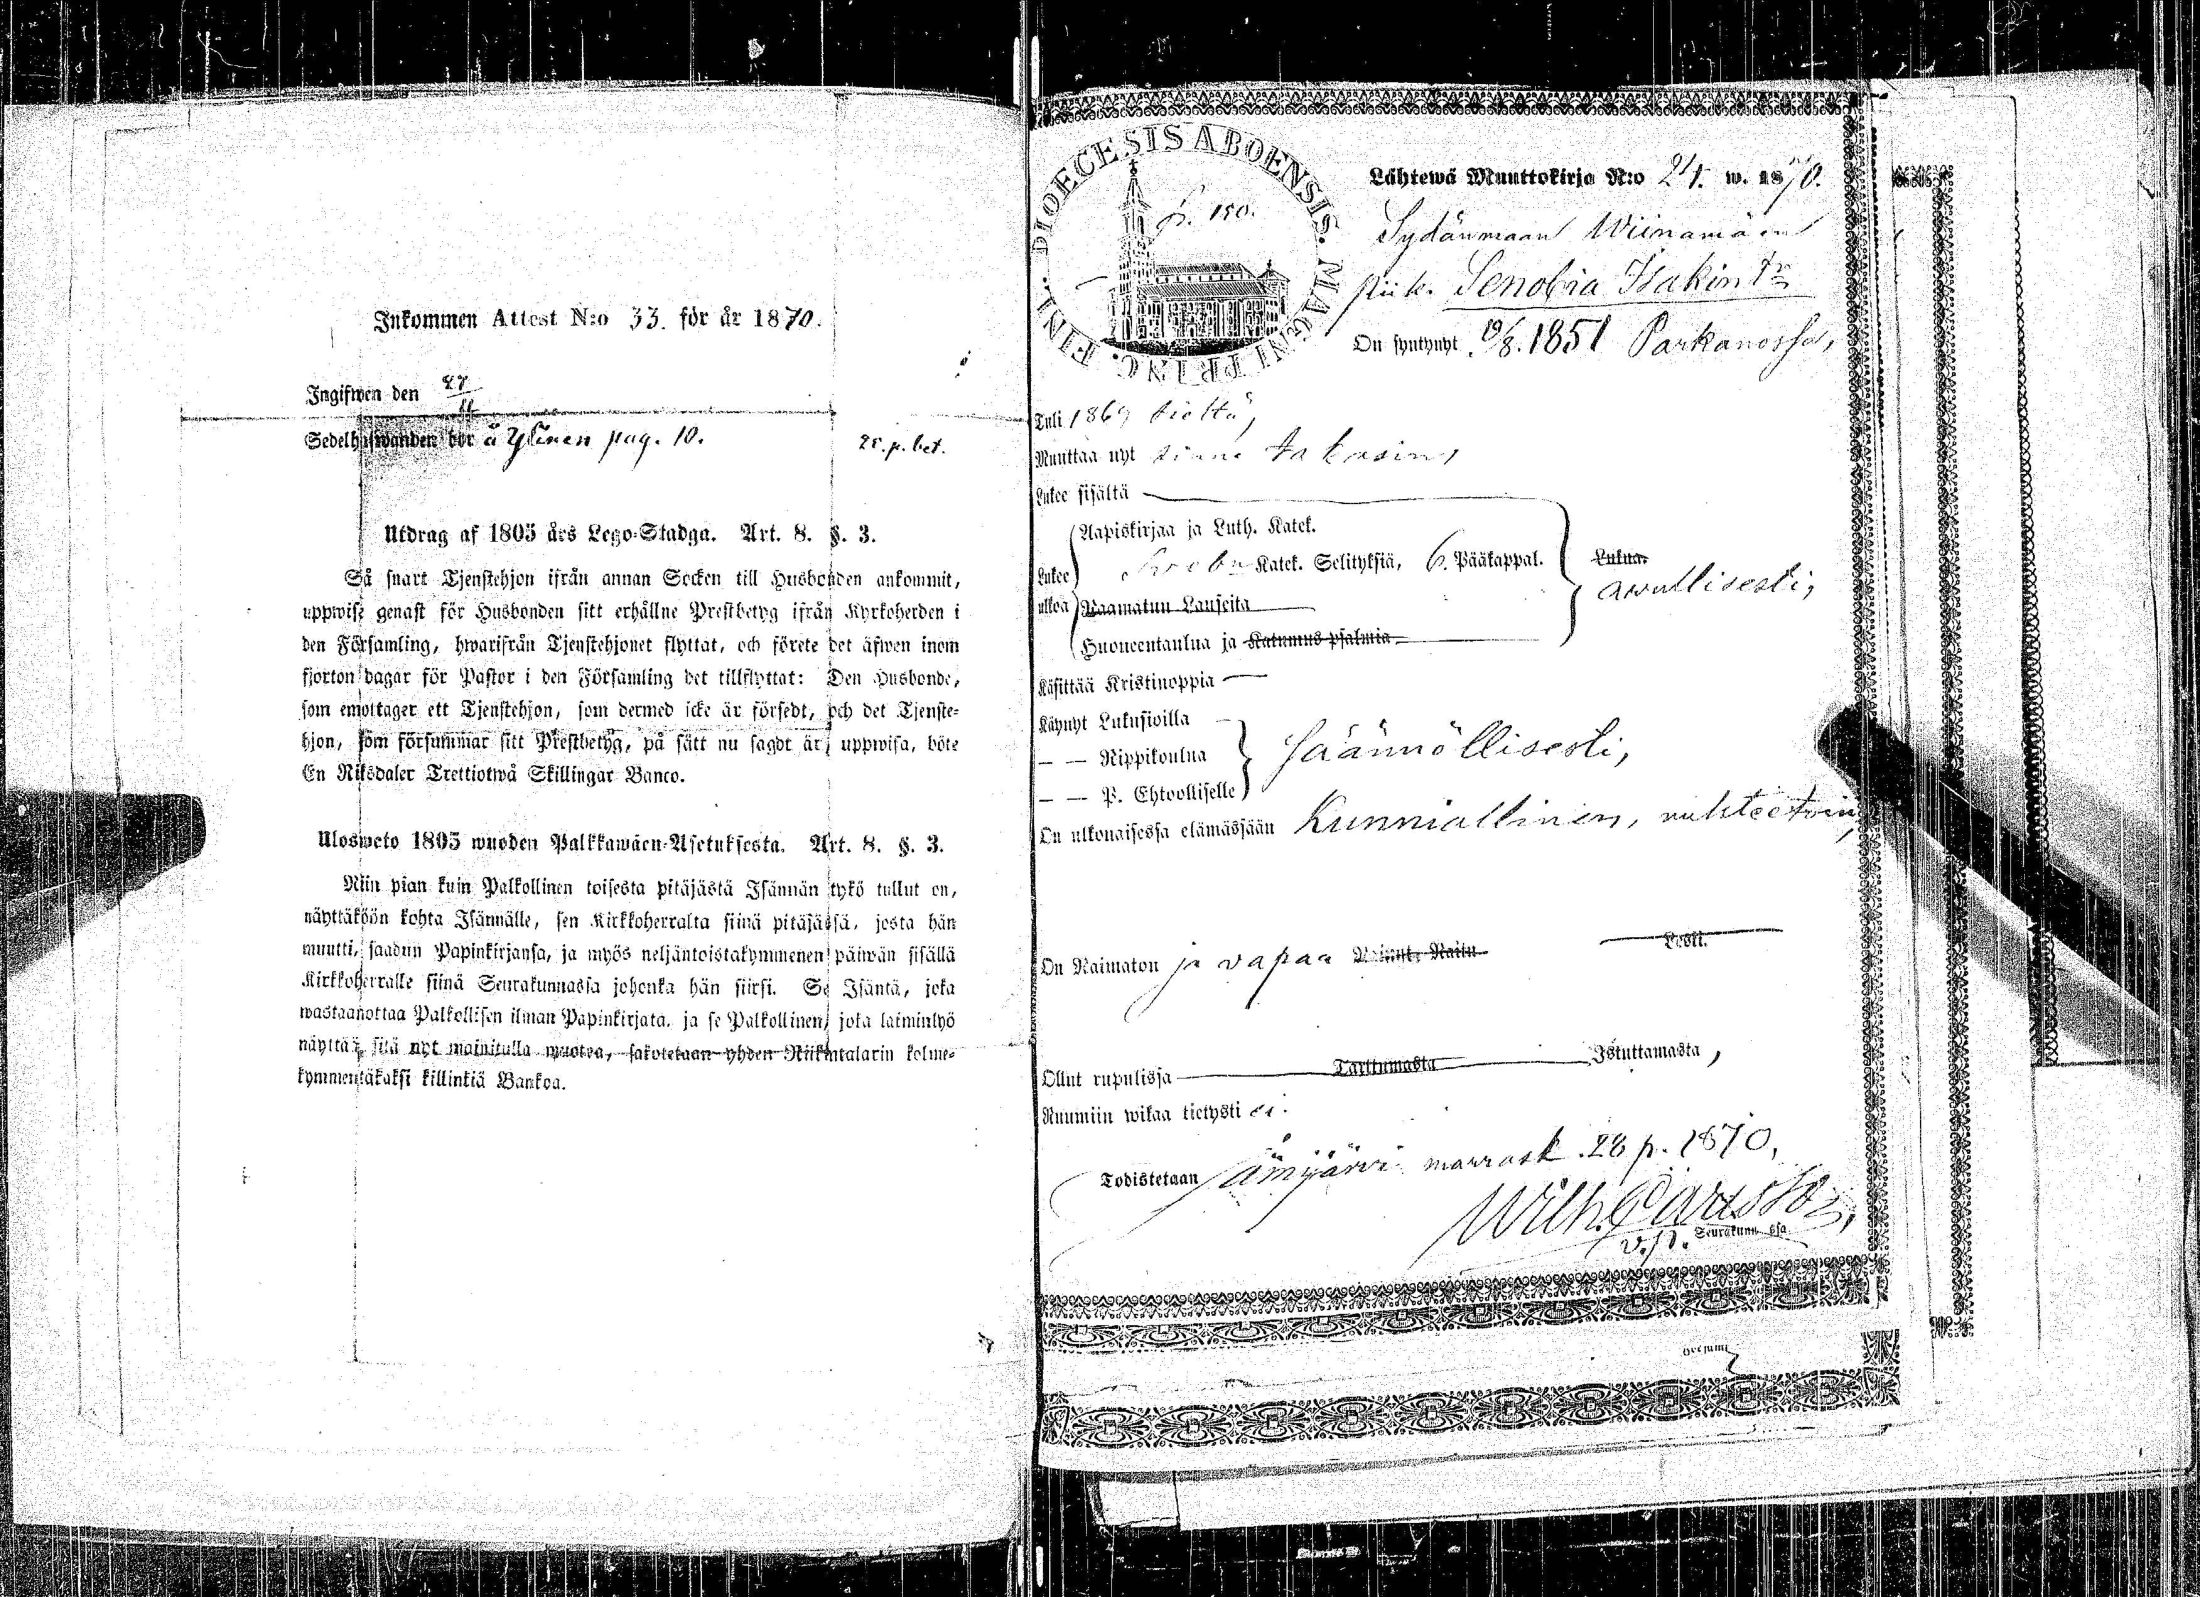 Inkommen Attest N:o 33. för år 1870.
Ingifwen den 27/11
Sedelhafwanden bor å Ylinen pag. 10.
25. p. bet.
Utdrag af 1805 års Lego-Stadga. Art. 8. §. 3.
Så snart Tjenstehjon ifrån annan Socken till Husbonden ankommit,
uppwise genast för Husbonden sitt erhållne Prestbetyg ifrån Kyrkoherden i
den Församling, hwarifrån Tjenstehjonet flyttat, och förete det äfwen inom
fjorton dagar för Pastor i den Församling det tillflyttat: Den Husbonde,
som emottager ett Tjenstehjon, som dermed icke är försedt, och det Tjenste-
hjon, som försummar sitt Prestbetyg, på sätt nu sagdt är, uppwisa, böte
En Riksdaler Trettiotwå Skillingar Banco.
Ulosweto 1805 wuoden Palkkawäen-Asetuksesta. Art. 8. §. 3.
Niin pian kuin Palkollinen toisesta pitäjästä Isännän tykö tullut on,
näyttäköön kohta Isännälle, sen Kirkkoherralta siinä pitäjässä, josta hän
muutti, saadun Papinkirjansa, ja myös neljäntoistakymmenen päiwän sisällä
Kirkkoherralle siinä Seurakunnassa johonka hän siirsi. Se Isäntä, joka
wastaanottaa Palkollisen ilman Papinkirjata, ja se Palkollinen, jota laiminlyö
näyttää sitä nyt mainitulla muotoa, sakotetaan yhden Riikintalarin kolme-
kymmentäkaksi killinkiä Bankoa.
DIOECESIS ABOENSIS. MAGNI PRINC. FINL.
p. 150.
Lähtewä Muuttokirja N:o 21. w. 1870.
Sydänmaan Wiinamäen
piik. Senobia Isakintr
On syntynyt 19/8. 1851 Parkanossa,
Tuli 1869 sieltä,
Muuttaa nyt sinne takasin,
Lukee sisältä
Aapiskirjaa ja Luth. Katek.
Lukee Katek. Selityksiä, 6. Pääkappal.
Lukua.
awullisesti,
ulkoa Raamatun Lauseita
Huoneentaulua ja Katumus psalmia
Käsittää Kristinoppia
Käynyt Lukusioilla
— — Rippikoulua
säännöllisesti,
— — P. Ehtoolliselle
On ulkonaisessa elämässään Kunniallinen, nuhteetoin,
On Naimaton ja vapaa
Lesti.
Ollut rupulissa Tarttumasta Istuttamasta,
Ruumiin wikaa tietysti ei.
Todistetaan Jämijärvi marrask. 28 p. 1870,
Wilh.
v. p. Seurakunnassa